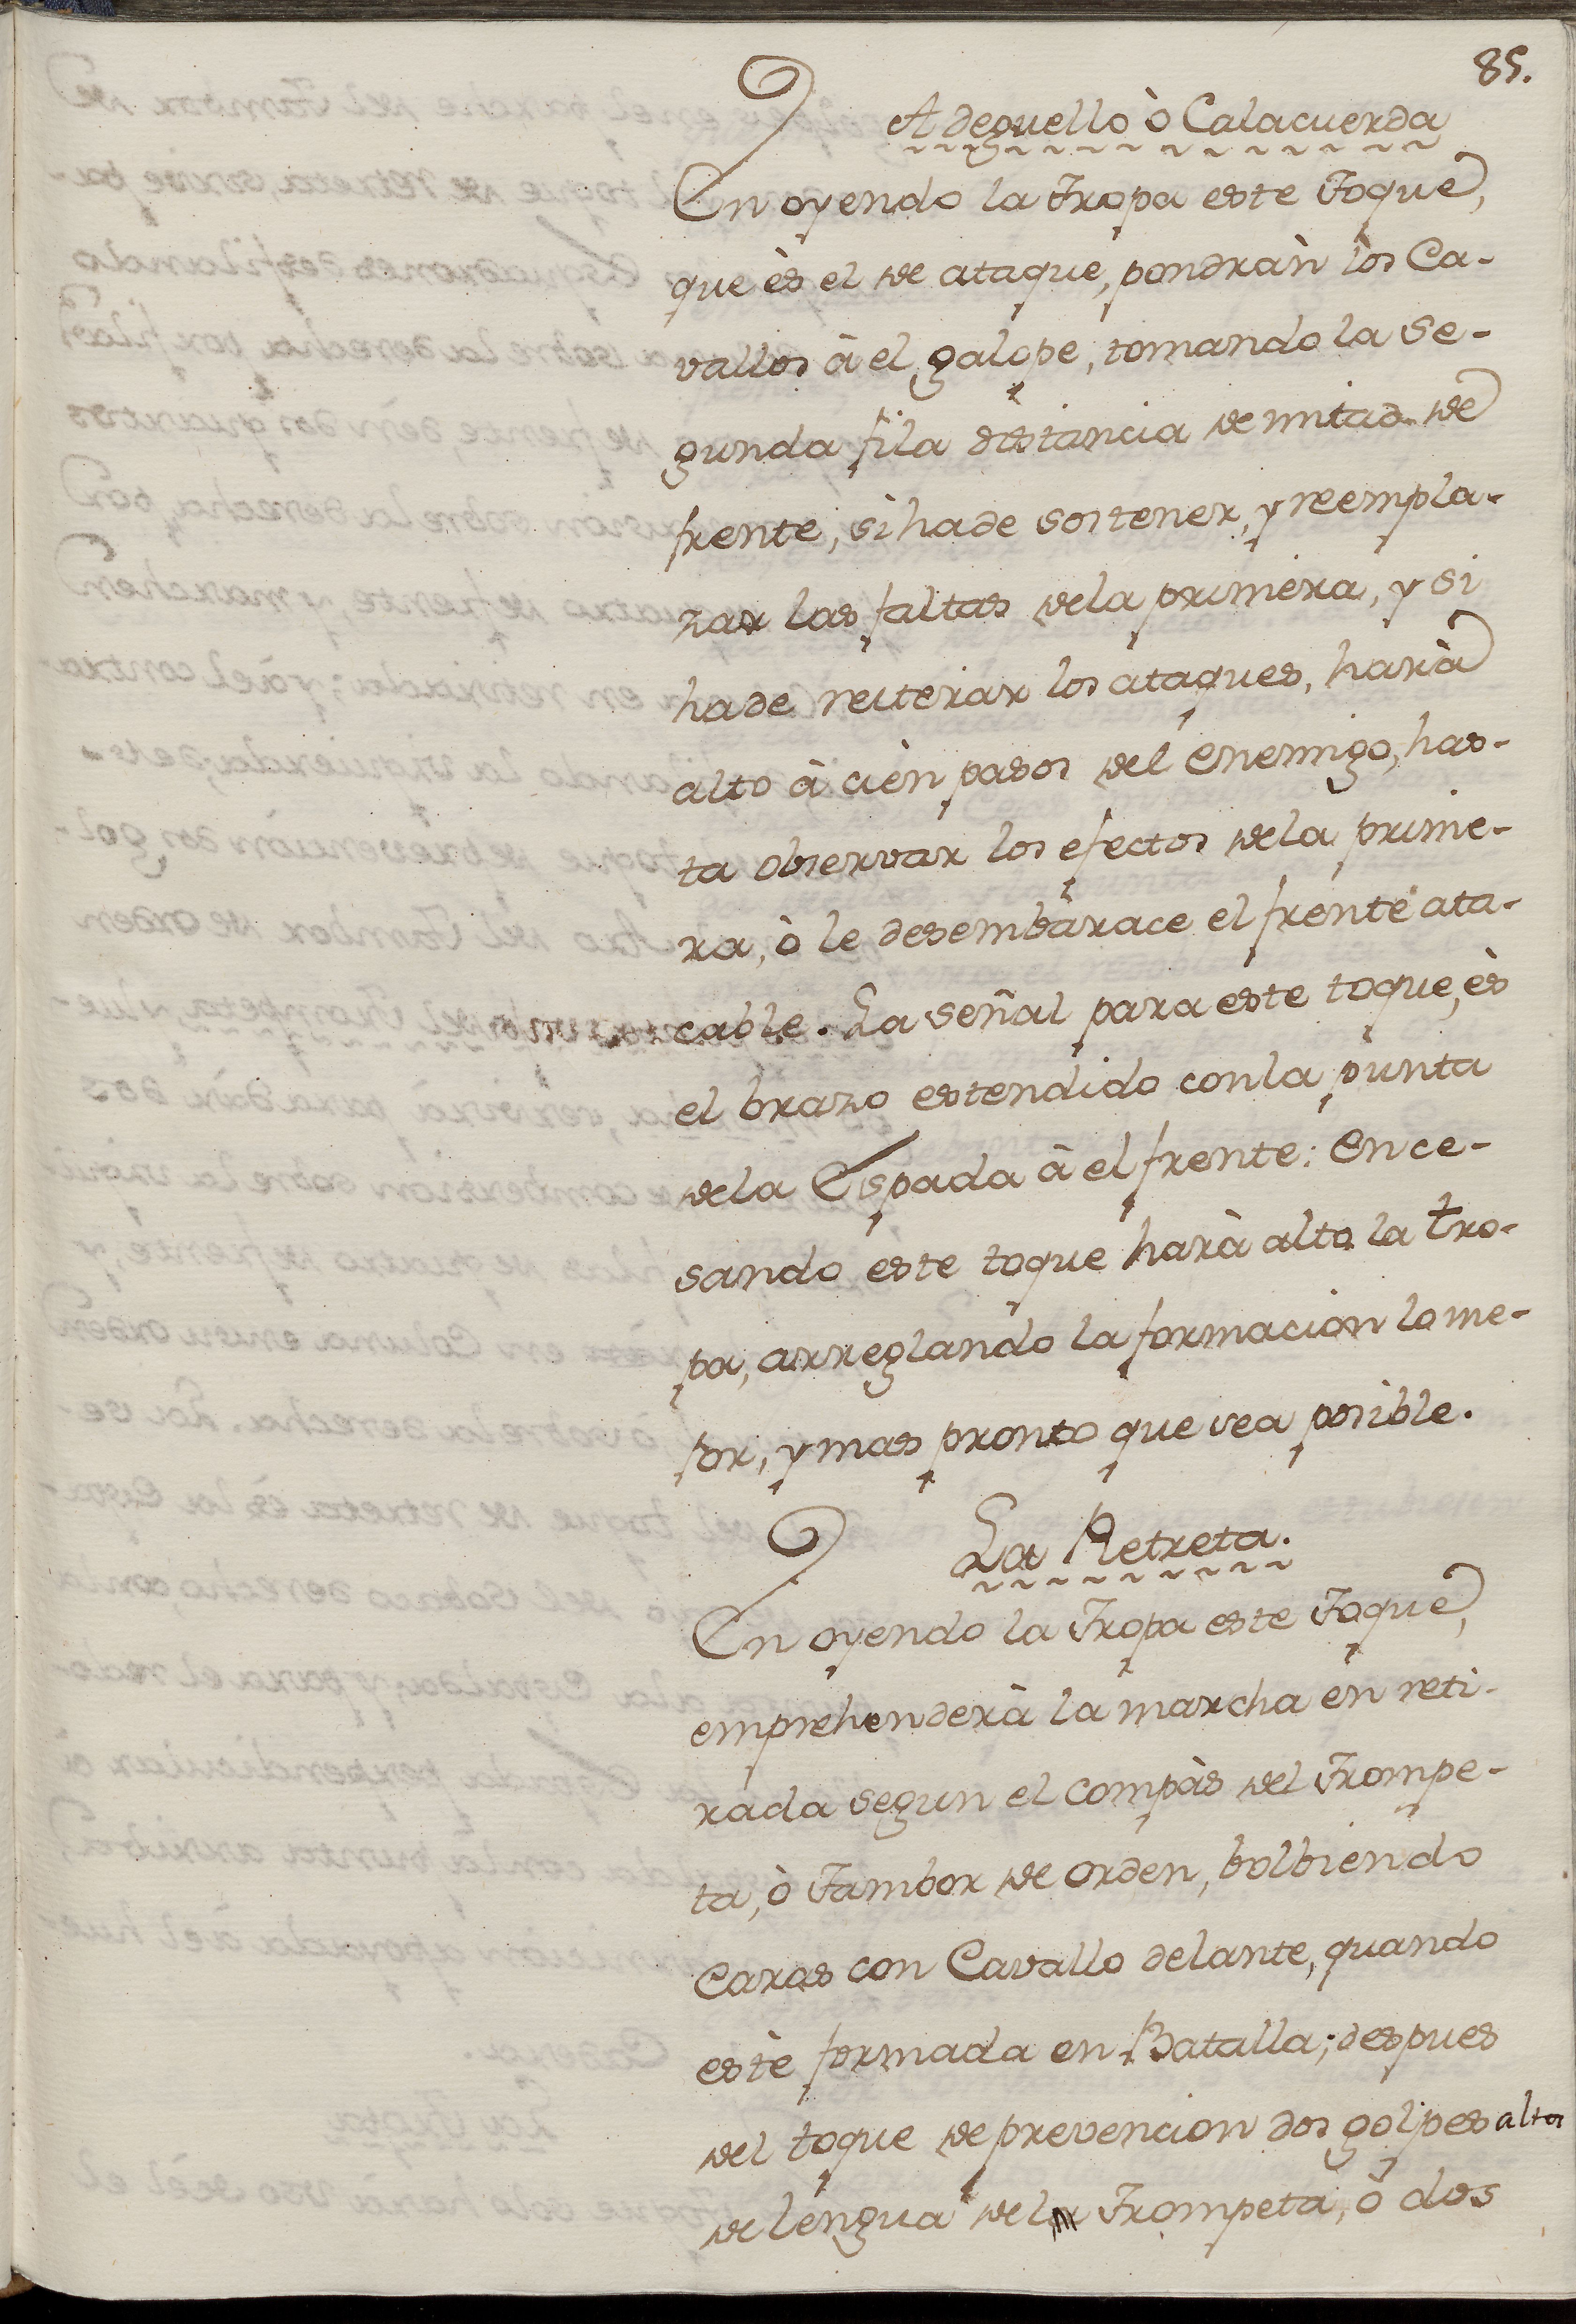 85.
A deguello ò Calacuerda
En oyendo la Tropa este Toque,
que ès el de ataque, pondràn los Ca-
vallos à el galope, tomando la se-
gunda fila distancia de mitad de
frente, si hade sostener, y reempla-
zar las faltas dela primera, y si
hade reiterar los ataques, harà
alto à cièn pasos del enemigo, has-
ta observar los efectos dela prime-
ra, ò le desembarace el frente ata-
cable. La señal para este toque, ès
el brazo estendido conla punta
dela Espada à el frente: En ce-
sando este toque harà alto la tro-
pa, arreglando la formacion lo me-
jor, y mas pronto que sea posible.
La Retreta.
En oyendo la Tropa este Toque,
emprehenderà la marcha en reti-
rada segun el compàs del Trompe-
ta, ò Tambor de orden, bolbiendo
Caras con Cavallo delante, quando
estè formada en Batalla; despues
del toque de prevencion dos golpes altos
de lengua del Trompeta, ò dos